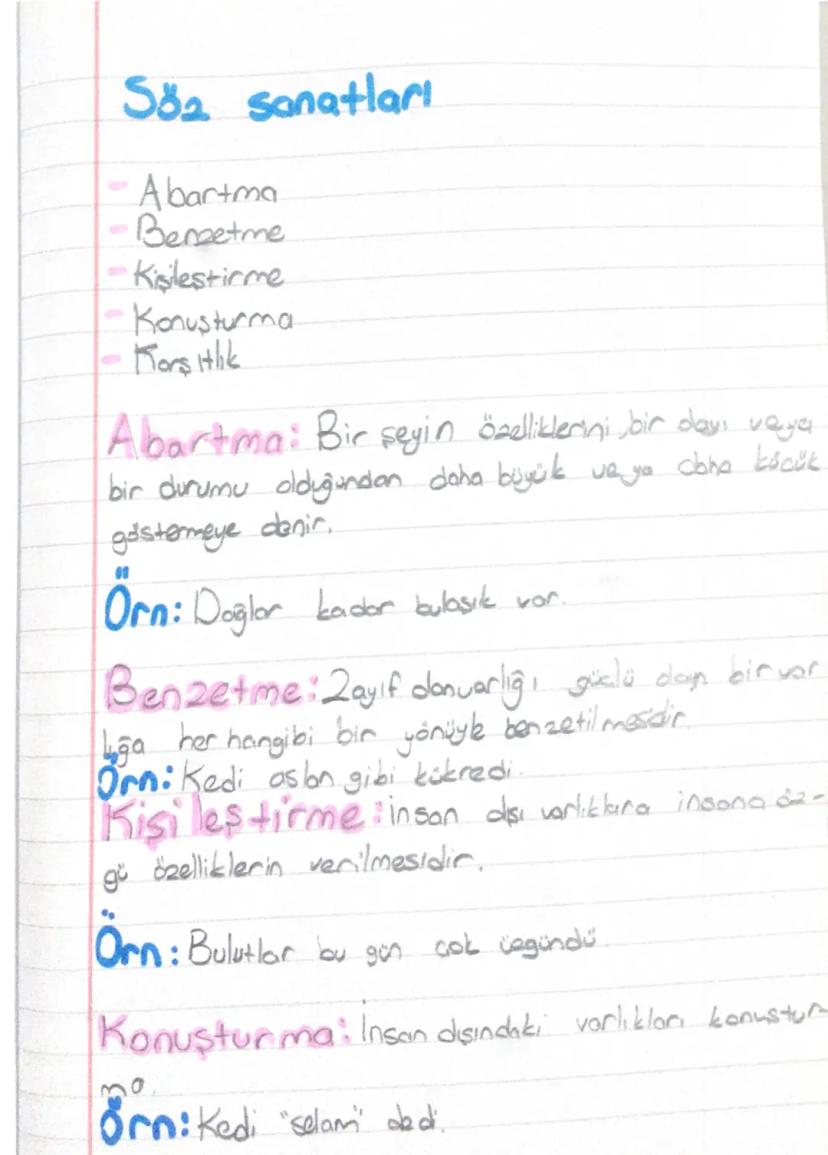 Söz sanatları
- Abartma
- Benzetme
- Kişileştirme
- Konuşturma
- Karşıtlık
Abartma: Bir şeyin özelliklerini, bir olayı veya
bir durumu olduğundan daha büyük veya daha küçük
göstermeye denir.
Örn: Dağlar kadar bulaşık var.
Benzetme: Zayıf olanvarlığı güçlü olan bir var
lığa her hangibi bir yönüyle benzetilmesidir
Örn: Kedi aslan gibi kükredi.
Kişileştirme: insan dışı varlıklara insana öz-
gü özelliklerin verilmesidir.
Örn: Bulutlar bu gün çok üzgündü
Konuşturma: İnsan dışındaki varlıkları konuştur
ma.
Örn: Kedi "selam" dedi.